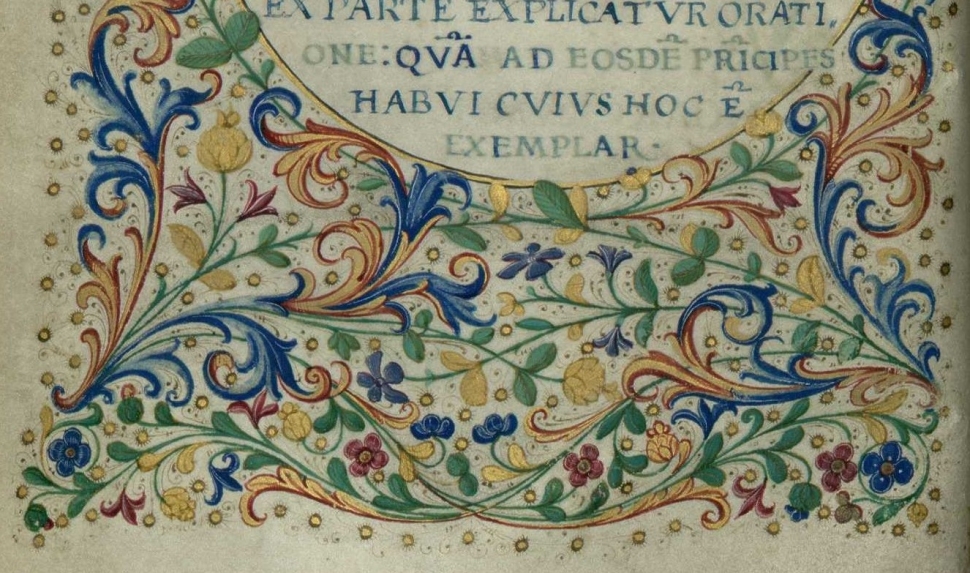 EX PARTE EXPLICATVR ORATI,
ONE: QVÃ AD EOSDẼ PRĨCIPES
HABVI CVIVS HOC Ẽ
EXEMPLAR·